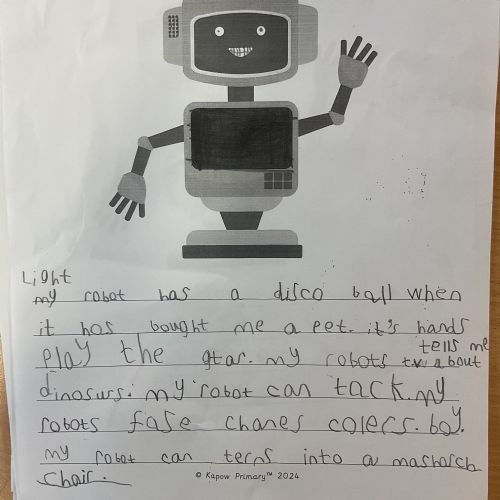 Light
my robot has a disco ball when
it has bought me a pet. it's hands
play the gtar. my robots tv tells me about
dinosurs. my robot can tack. my
robots fase chanes colers. boy.
my robot can terns into a masharch
chair.
© Kapow Primary™ 2024